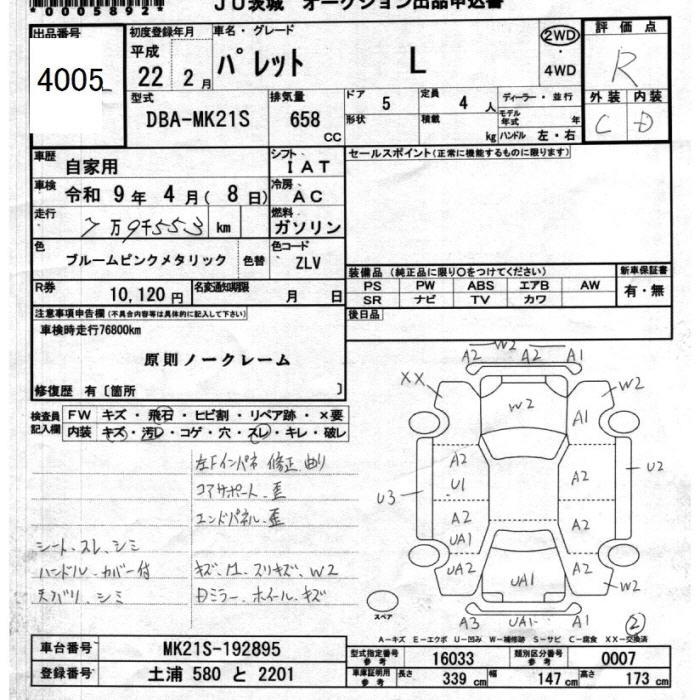 *0005892*
JU茨城 オークション出品申込書
出品番号
4005
初度登録年月
平成
22 2月
車名・グレード
パレット L
2WD
4WD
評価点
R
外装 内装
C D
型式
DBA-MK21S
排気量
658
CC
ドア
5
形状
定員
4人
積載
kg
ディーラー・並行
モデル年式 年
ハンドル 左・右
車歴
自家用
シフト
IAT
セールスポイント(正常に機能するものに限ります)
車検
令和 9年 4月( 8日)
冷房
AC
走行
7万9千553 km
燃料
ガソリン
色
ブルームピンクメタリック
色替
色コード
ZLV
装備品 (純正品に限り○をつけてください)
PS PW ABS エアB AW
SR ナビ TV カワ
新車保証書
有・無
R券
10,120円
名変通知期限
月 日
後日品
注意事項申告欄(不具合内容等は具体的に記入して下さい)
車検時走行76800km
原則ノークレーム
修復歴 有〔箇所 〕
検査員記入欄
FW キズ・飛石・ヒビ割・リペア跡・×要
内装 キズ・汚レ・コゲ・穴・スレ・キレ・破レ
左Fインパネ 修正 曲り
コアサポート.歪
エンドパネル.歪
シート.スレ.シミ
ハンドル.カバー付
天バリ.シミ
キズ.凹.スリキズ.W2
Dミラー.ホイール.キズ
W2
A2 A2 A1
XX W2
W2
A1
A2
U1
A2
U3
U2
A2
UA1
A2
UA2
A2
UA1
W2
スペア
A3 UA1 A1
2
A-キズ E-エクボ U-凹み W-補修跡 S-サビ C-腐食 XX-交換済
車台番号
MK21S-192895
登録番号
土浦 580 と 2201
型式指定番号 参考
16033
類別区分番号 参考
0007
車庫証明用 参考
長さ 339cm 幅 147cm 高さ 173cm